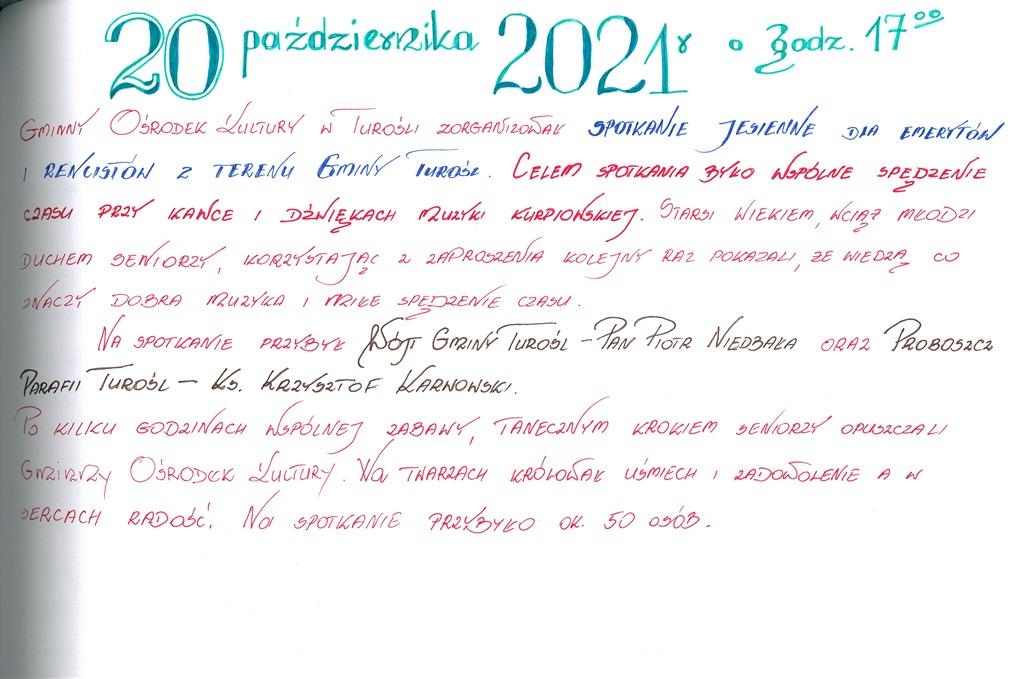 20 października 2021r o godz. 17⁰⁰
Gminny Ośrodek Kultury w Turośli zorganizował spotkanie jesienne dla emerytów
i rencistów z terenu Gminy Turośl. Celem spotkania było wspólne spędzenie
czasu przy kawce i dźwiękach muzyki kurpiowskiej. Starsi wiekiem, wciąż młodzi
duchem seniorzy, korzystając z zaproszenia kolejny raz pokazali, że wiedzą co
znaczy dobra muzyka i miłe spędzenie czasu.
Na spotkanie przybył Wójt Gminy Turośl – Pan Piotr Niedbała oraz Proboszcz
Parafii Turośl – Ks. Krzysztof Karwowski.
Po kilku godzinach wspólnej zabawy, tanecznym krokiem seniorzy opuszczali
Gminny Ośrodek Kultury. Na twarzach królował uśmiech i zadowolenie a w
sercach radość. Na spotkanie przybyło ok. 50 osób.